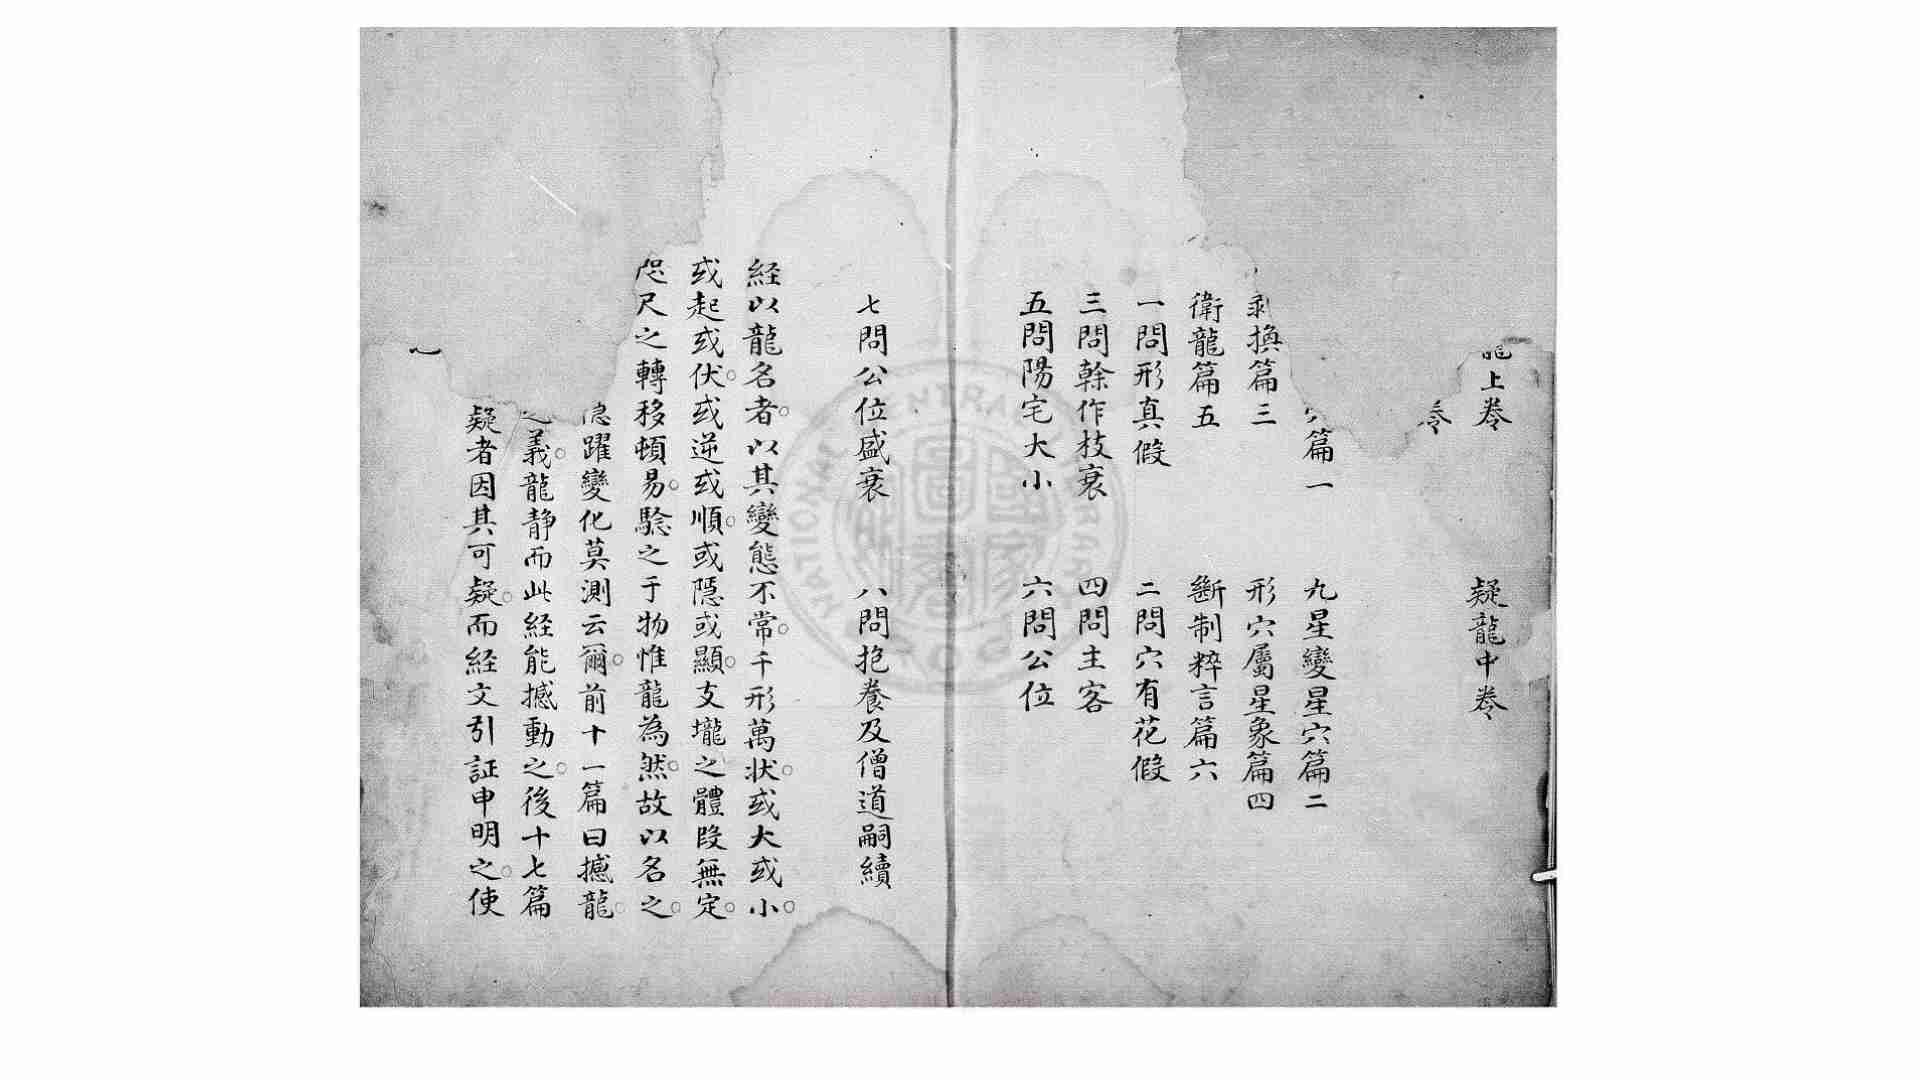 上卷 疑龍中卷
卷
篇一 九星變星穴篇二
剥換篇三 形穴屬星象篇四
衛龍篇五 斷制粹言篇六
一問形真假 二問穴有花假
三問榦作枝衰 四問主客
五問陽宅大小 六問公位
七問公位盛衰 八問抱養及僧道嗣續
経以龍名者。以其變態不常。千形萬状。或大或小。
或起或伏。或逆或順。或隱或顯。支壠之體段無定。
咫尺之轉移頓易。騐之于物惟龍為然。故以名之。
躍變化莫測云爾。前十一篇曰撼龍。
之義。龍静而此経能撼動之。後十七篇
疑者因其可疑。而経文引証申明之。使